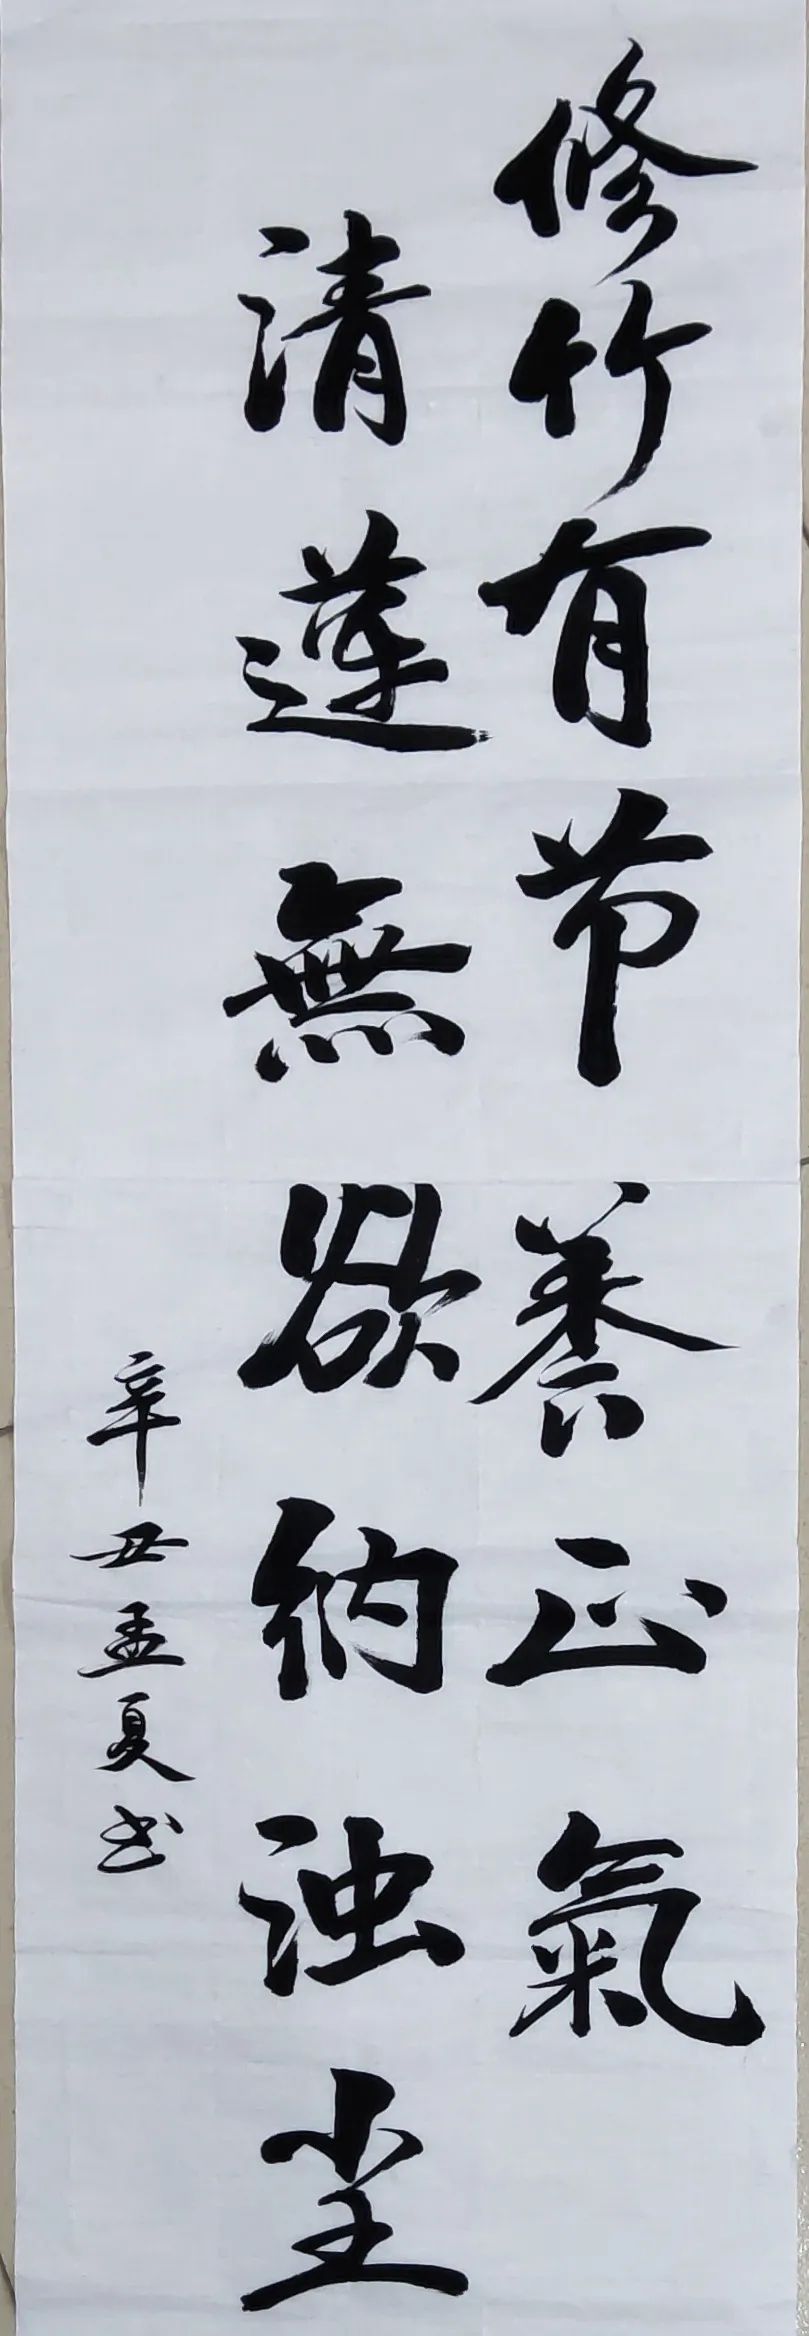 修竹有节養正氣
清蓮無欲纳浊尘
辛丑孟夏书